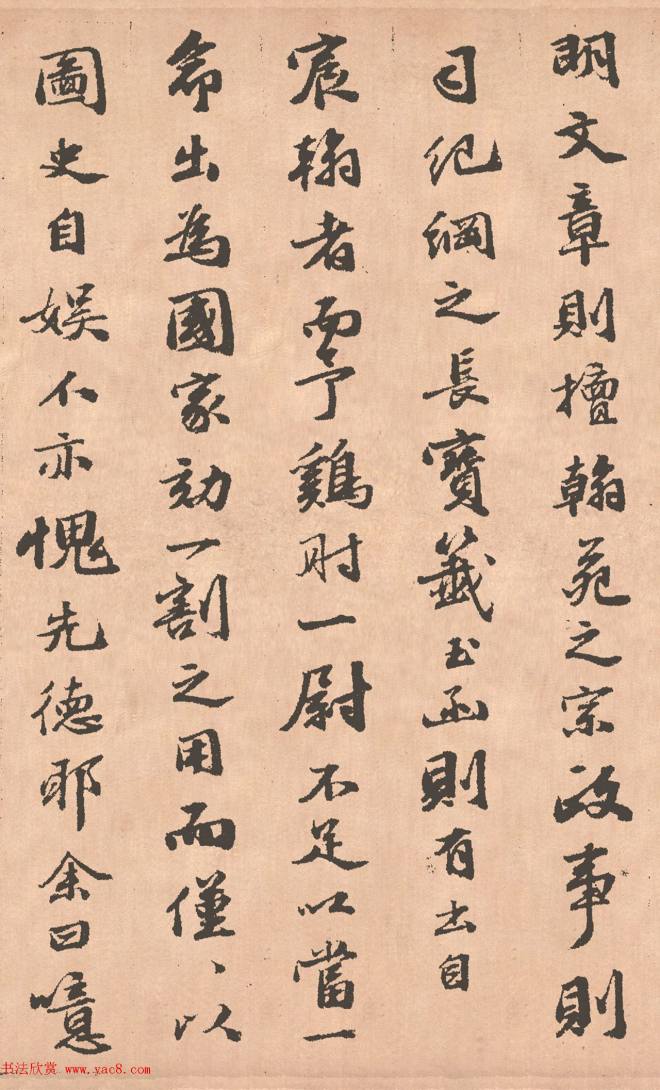 明文章則擅翰苑之宗政事則
司紀綱之長寶籤玉函則有出自
宸翰者而予雞肘一尉不足以當一
命出為國家效一割之用而僅僅以
圖史自娛不亦愧先德耶余曰噫
书法欣赏 www.yac8.com